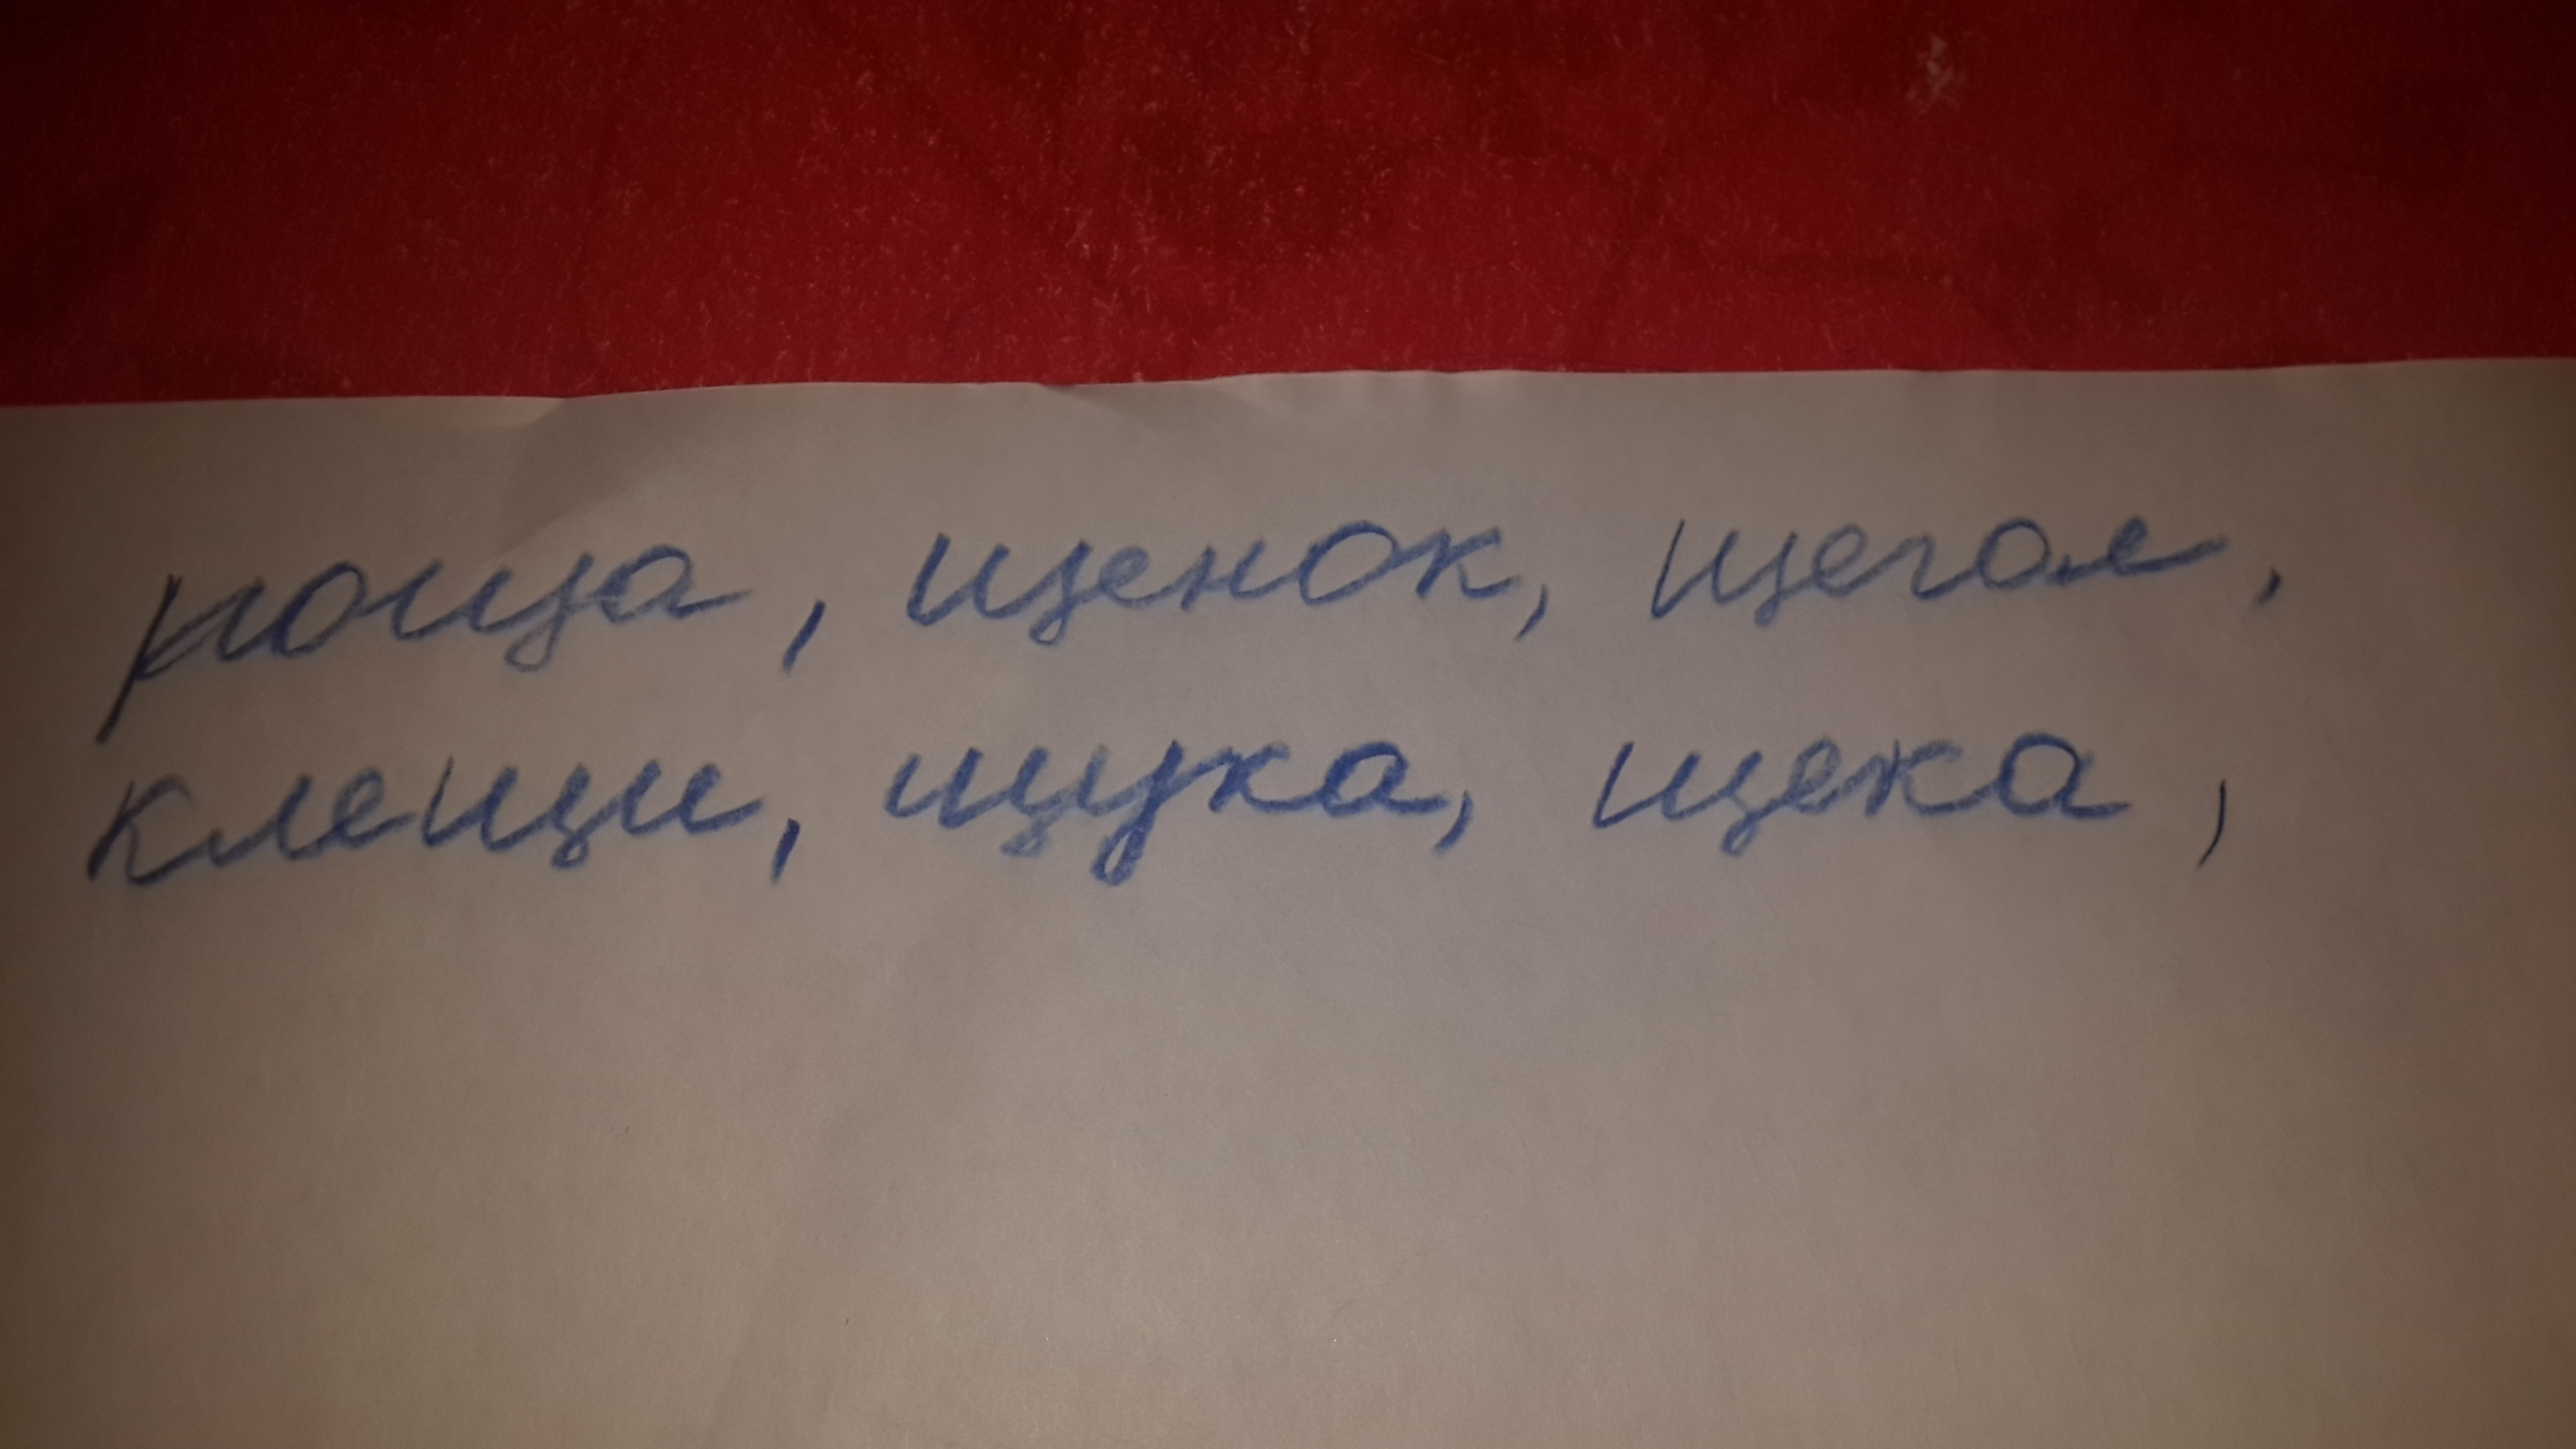 роща, щенок, щегол,
клещи, щука, щека,